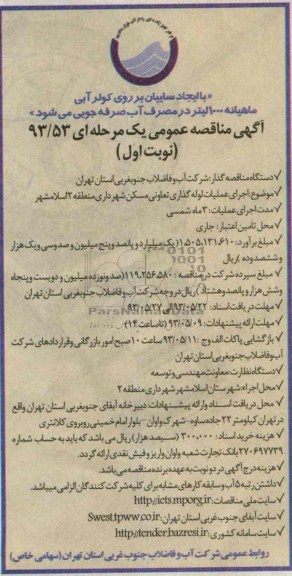 «با ایجاد سایبان بر روی کولر آبی
ماهیانه ۱۰۰۰ لیتر در مصرف آب صرفه جویی می شود»
آگهی مناقصه عمومی یک مرحله ای ۹۳/۵۳
(نوبت اول)
✓ دستگاه مناقصه گذار: شرکت آب و فاضلاب جنوبغربی استان تهران
✓ موضوع: اجرای عملیات لوله گذاری تعاونی مسکن شهرداری منطقه ۲ اسلامشهر
✓ مدت اجرای عملیات: ۳ ماه شمسی
✓ محل تامین اعتبار: جاری
✓ مبلغ برآورد: ۱،۵۰۵،۱۳۱،۶۱۰ (یک میلیارد و پانصد و پنج میلیون و صد و سی و یک هزار
و ششصد و ده) ریال
✓ مبلغ سپرده شرکت در مناقصه: ۱۱۹،۲۵۶،۵۸۰ (صد و نوزده میلیون و دویست و پنجاه
و شش هزار و پانصد و هشتاد) ریال در وجه شرکت آب و فاضلاب جنوبغربی استان تهران
✓ مهلت دریافت اسناد: ۹۳/۰۵/۲۲ الی ۹۳/۰۵/۲۷
✓ مهلت ارائه پیشنهادات: ۹۳/۰۵/۰۹ (تا ساعت ۱۴)
✓ بازگشایی پاکات الف و ج: ۹۳/۰۵/۱۱ ساعت ۱۰ صبح امور بازرگانی و قراردادهای شرکت
آب و فاضلاب جنوبغربی استان تهران
✓ دستگاه نظارت: معاونت مهندسی و توسعه
✓ محل اجراء: شهرستان اسلامشهر شهرداری منطقه ۲
✓ محل دریافت اسناد و ارائه پیشنهادات: دبیرخانه آبفای جنوبغربی استان تهران واقع
در تهران کیلومتر ۲۲ جاده ساوه- شهرک واوان- بلوار امام خمینی روبروی کلانتری
✓ هزینه خرید اسناد: ۳۰۰،۰۰۰ (سیصد هزار) ریال می باشد که باید به حساب شماره
۲۷۰۶۹۷۷۳۹ بانک تجارت شعبه واوان واریز و فیش نقدی ارائه گردد.
✓ هزینه درج آگهی در دو نوبت به عهده برنده مناقصه می باشد.
✓ داشتن رتبه ۵ آب و سابقه کارهای مشابه برای کلیه شرکت کنندگان الزامی میباشد.
✓ سایت ملی مناقصات: http://iets.mporg.ir
✓ سایت آبفای جنوب غربی استان تهران: Swest.tpww.co.ir
✓ سایت سامانه کشوری: http://tender.bazresi.ir
روابط عمومی شرکت آب و فاضلاب جنوب غربی استان تهران (سهامی خاص)